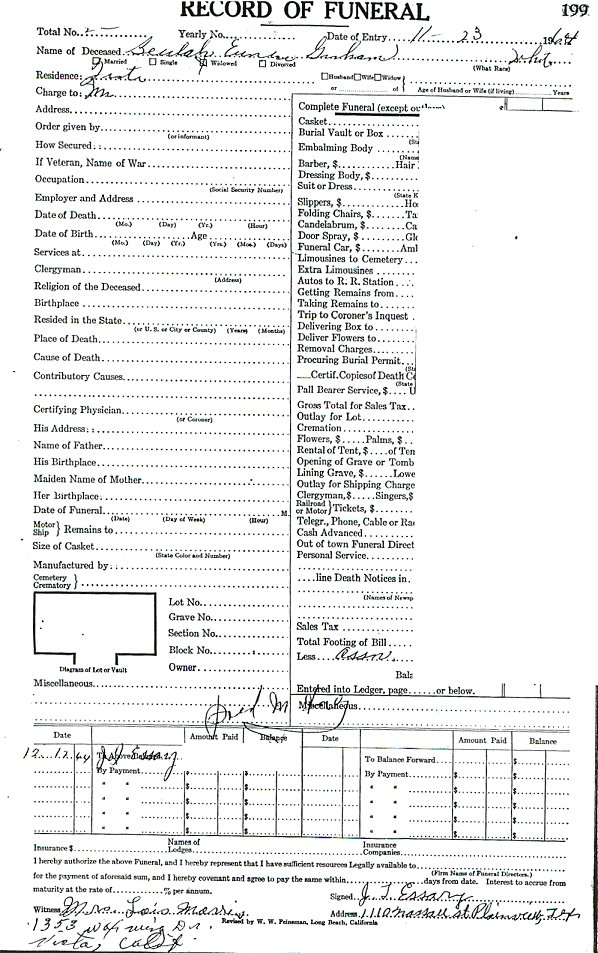 RECORD OF FUNERAL 199
Total No. Yearly No. Date of Entry 11 - 23 1964
Name of Deceased Beulah Graham
Married Single Widowed Divorced (What Race)
Residence: Husband Wife Widow
or of Age of Husband or Wife (if living) Years
Charge to:
Address
Order given by
(or informant)
How Secured
If Veteran, Name of War
Occupation
(Social Security Number)
Employer and Address
Date of Death
(Mo.) (Day) (Yr.) (Hour)
Date of Birth Age
(Mo.) (Day) (Yr.) (Yrs.) (Mos.) (Days)
Services at
Clergyman
(Address)
Religion of the Deceased
Birthplace
Resided in the State
(or U. S. or City or County) (Years) (Months)
Place of Death
Cause of Death
Contributory Causes
Certifying Physician
(or Coroner)
His Address
Name of Father
His Birthplace
Maiden Name of Mother
Her Birthplace
Date of Funeral M.
(Date) (Day of Week) (Hour)
Motor Ship } Remains to
Size of Casket
(State Color and Number)
Manufactured by
Cemetery Crematory }
Lot No.
Grave No.
Section No.
Block No.
Owner
Diagram of Lot or Vault
Miscellaneous
Complete Funeral (except
Casket
Burial Vault or Box
(St
Embalming Body
(Name
Barber, $ Hair
Dressing Body, $
Suit or Dress
(State K
Slippers, $ Ho
Folding Chairs, $ Ta
Candelabrum, $ Ca
Door Spray, $ Gl
Funeral Car, $ Aml
Limousines to Cemetery
Extra Limousines
Autos to R. R. Station
Getting Remains from
Taking Remains to
Trip to Coroner's Inquest
Delivering Box to
Deliver Flowers to
Removal Charges
Procuring Burial Permit
(St
Certif. Copies of Death C
(State
Pall Bearer Service, $ U
Gross Total for Sales Tax
Outlay for Lot
Cremation
Flowers, $ Palms, $
Rental of Tent, $ of Ten
Opening of Grave or Tomb
Lining Grave, $ Lowe
Outlay for Shipping Charge
Clergyman, $ Singers, $
Railroad or Motor } Tickets, $
Telegr., Phone, Cable or Ra
Cash Advanced
Out of town Funeral Direct
Personal Service
line Death Notices in
(Names of Newsp
Sales Tax
Total Footing of Bill
Less Assn.
Bala
Entered into Ledger, page or below.
Miscellaneous
Date Amount Paid Balance Date Amount Paid Balance
12 . 17 . 64 J. J. Essary To Balance Forward $
By Payment $ By Payment $
" " $ " " $
" " $ " " $
" " $ " " $
" " $ " " $
Insurance $ Names of Lodges Insurance Companies
I hereby authorize the above Funeral, and I hereby represent that I have sufficient resources Legally available to
(Firm Name of Funeral Directors.)
for the payment of aforesaid sum, and I hereby covenant and agree to pay the same within days from date. Interest to accrue from
maturity at the rate of % per annum. Signed J. T. Essary
Witness Mrs. Lois Address 1110 Nassau st
1353 Dr. Revised by W. W. Feineman, Long Beach, California
Vista, Calif